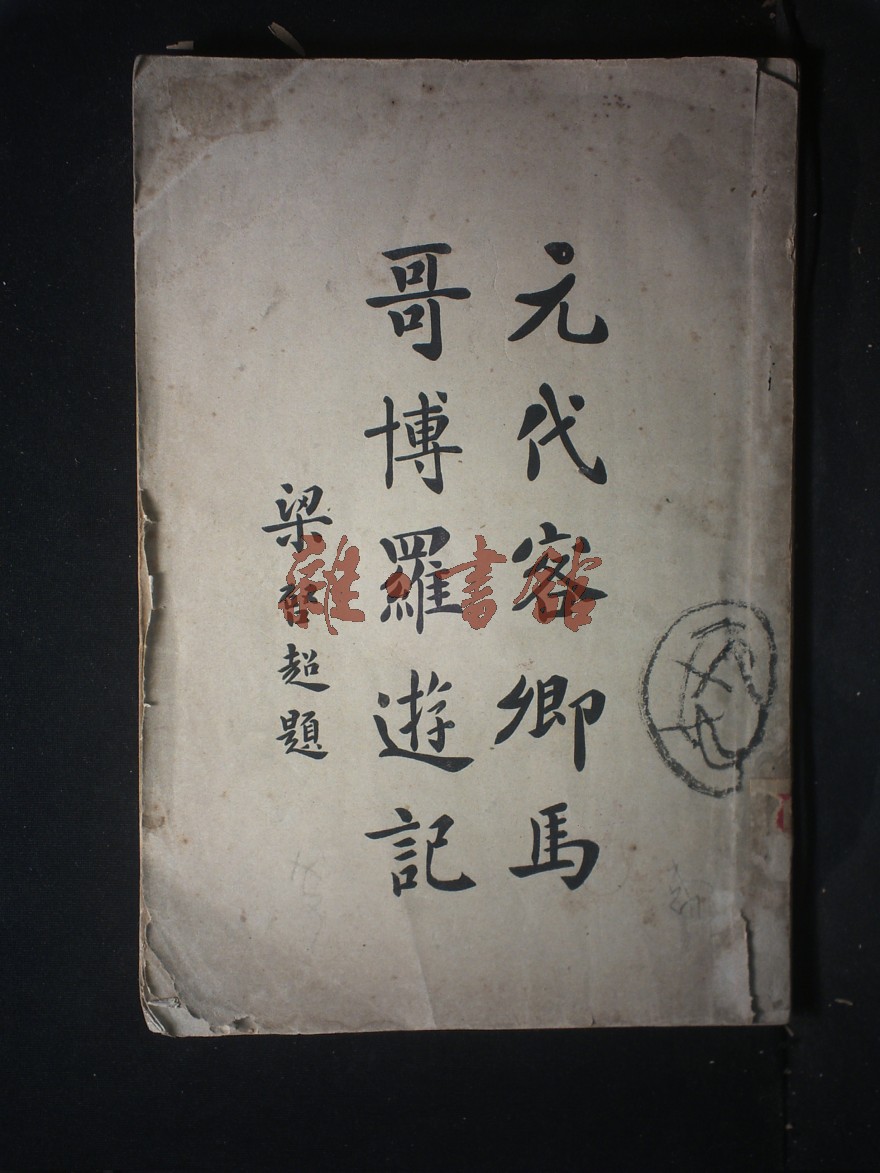 元代客卿馬
哥博羅遊記
梁啓超題
雜書館